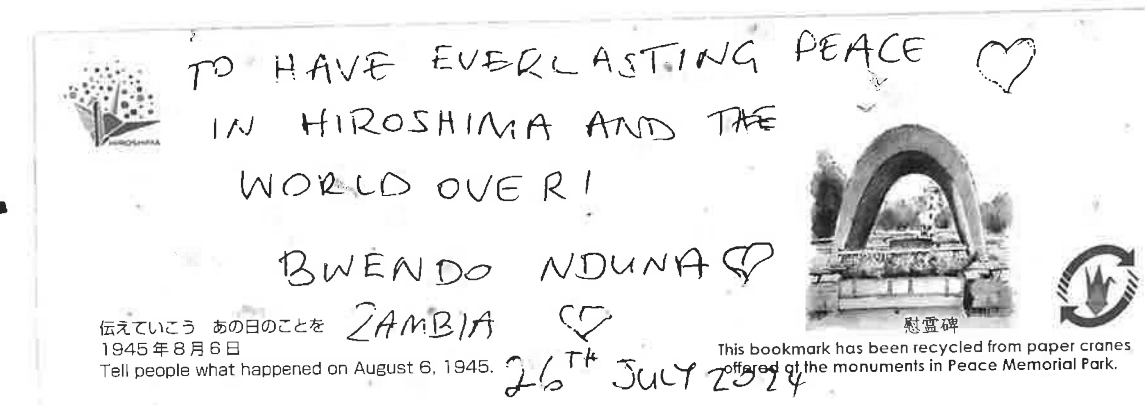 TO HAVE EVERLASTING PEACE
IN HIROSHIMA AND THE
WORLD OVER!
BWENDO NDUNA
ZAMBIA
26TH JULY 2024
HIROSHIMA
伝えていこう あの日のことを
1945年8月6日
Tell people what happened on August 6, 1945.
慰霊碑
This bookmark has been recycled from paper cranes
offered at the monuments in Peace Memorial Park.